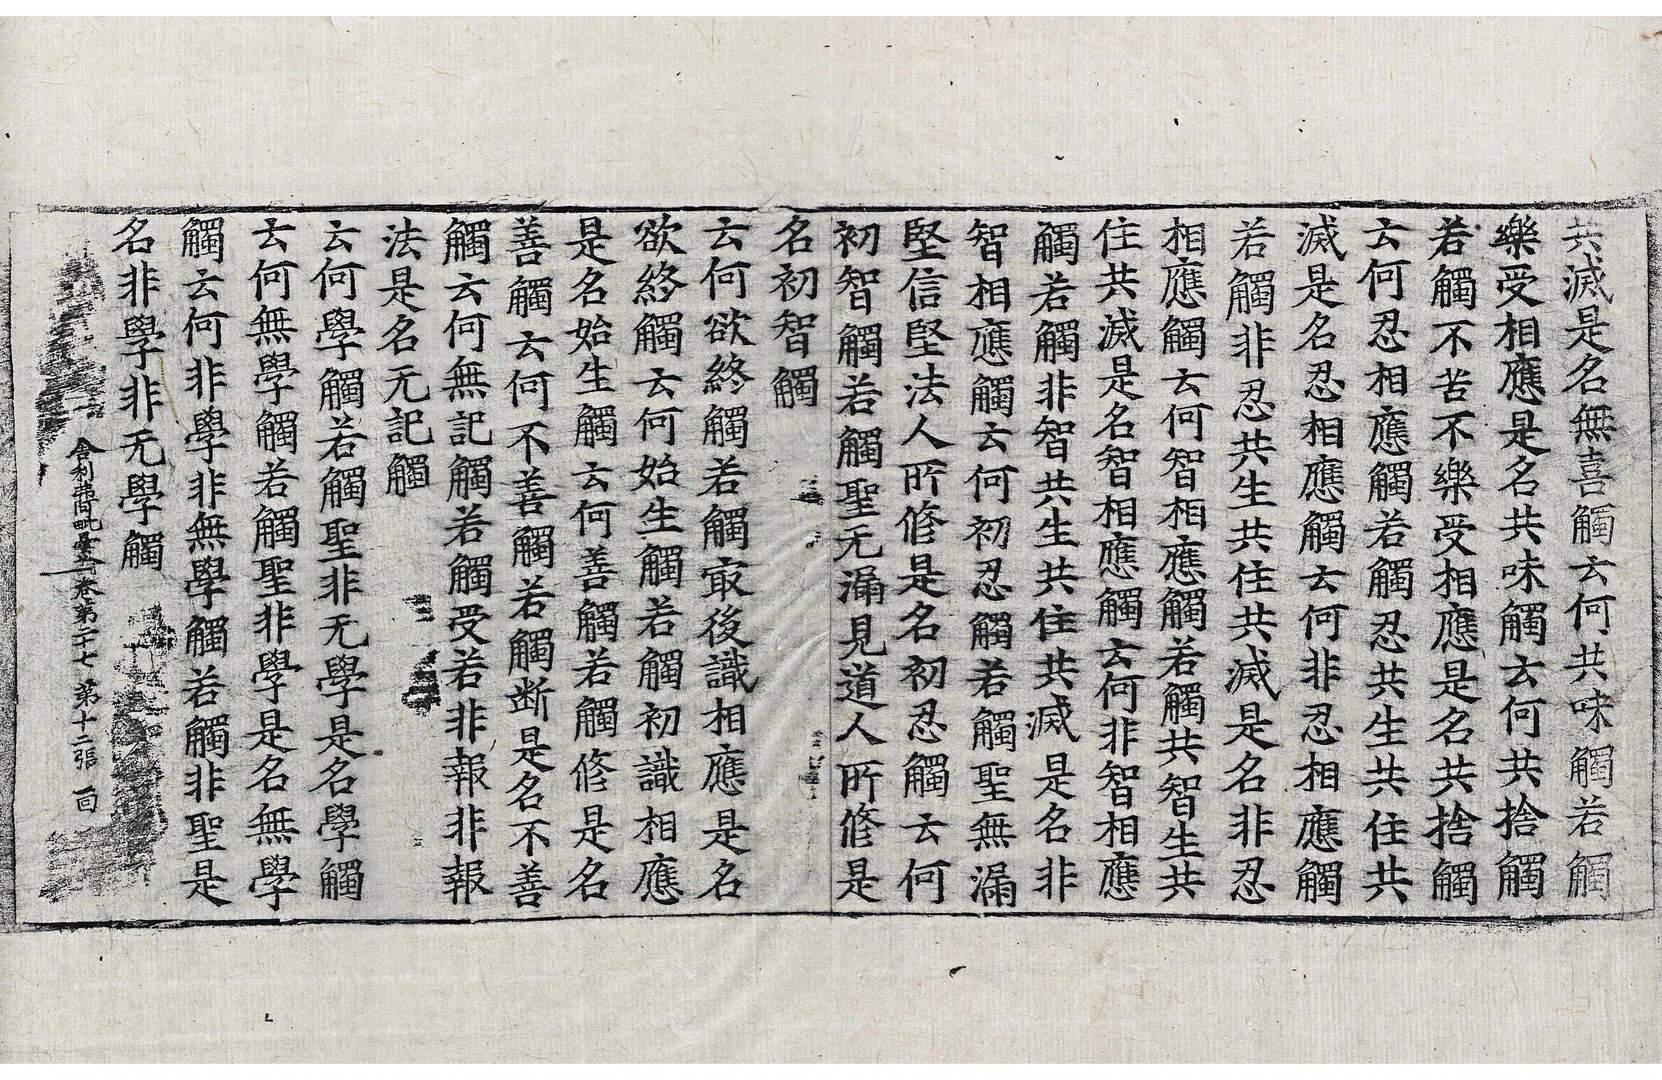 共滅是名無喜觸云何共味觸若觸
樂受相應是名共味觸云何共捨觸
若觸不苦不樂受相應是名共捨觸
云何忍相應觸若觸忍共生共住共
滅是名忍相應觸云何非忍相應觸
若觸非忍共生共住共滅是名非忍
相應觸云何智相應觸若觸共智生共
住共滅是名智相應觸云何非智相應
觸若觸非智共生共住共滅是名非
智相應觸云何初忍觸若觸聖無漏
堅信堅法人所修是名初忍觸云何
初智觸若觸聖无漏見道人所修是
名初智觸
云何欲終觸若觸㝡後識相應是名
欲終觸云何始生觸若觸初識相應
是名始生觸云何善觸若觸修是名
善觸云何不善觸若觸断是名不善
觸云何無記觸若觸受若非報非報
法是名无記觸
云何學觸若觸聖非无學是名學觸
云何無學觸若觸聖非學是名無學
觸云何非學非無學觸若觸非聖是
名非學非无學觸
舍利弗阿毗曇卷第二十七 第十二張